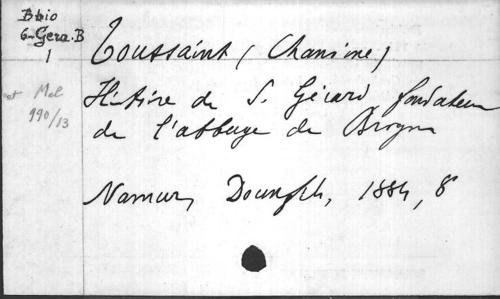 Bbio
6-Gera.B
1
et Mel
990/13
Toussaint (Chanoine)
Histoire de S. Gérard fondateur
de l'abbaye de Brogne
Namur, 1884, 8°